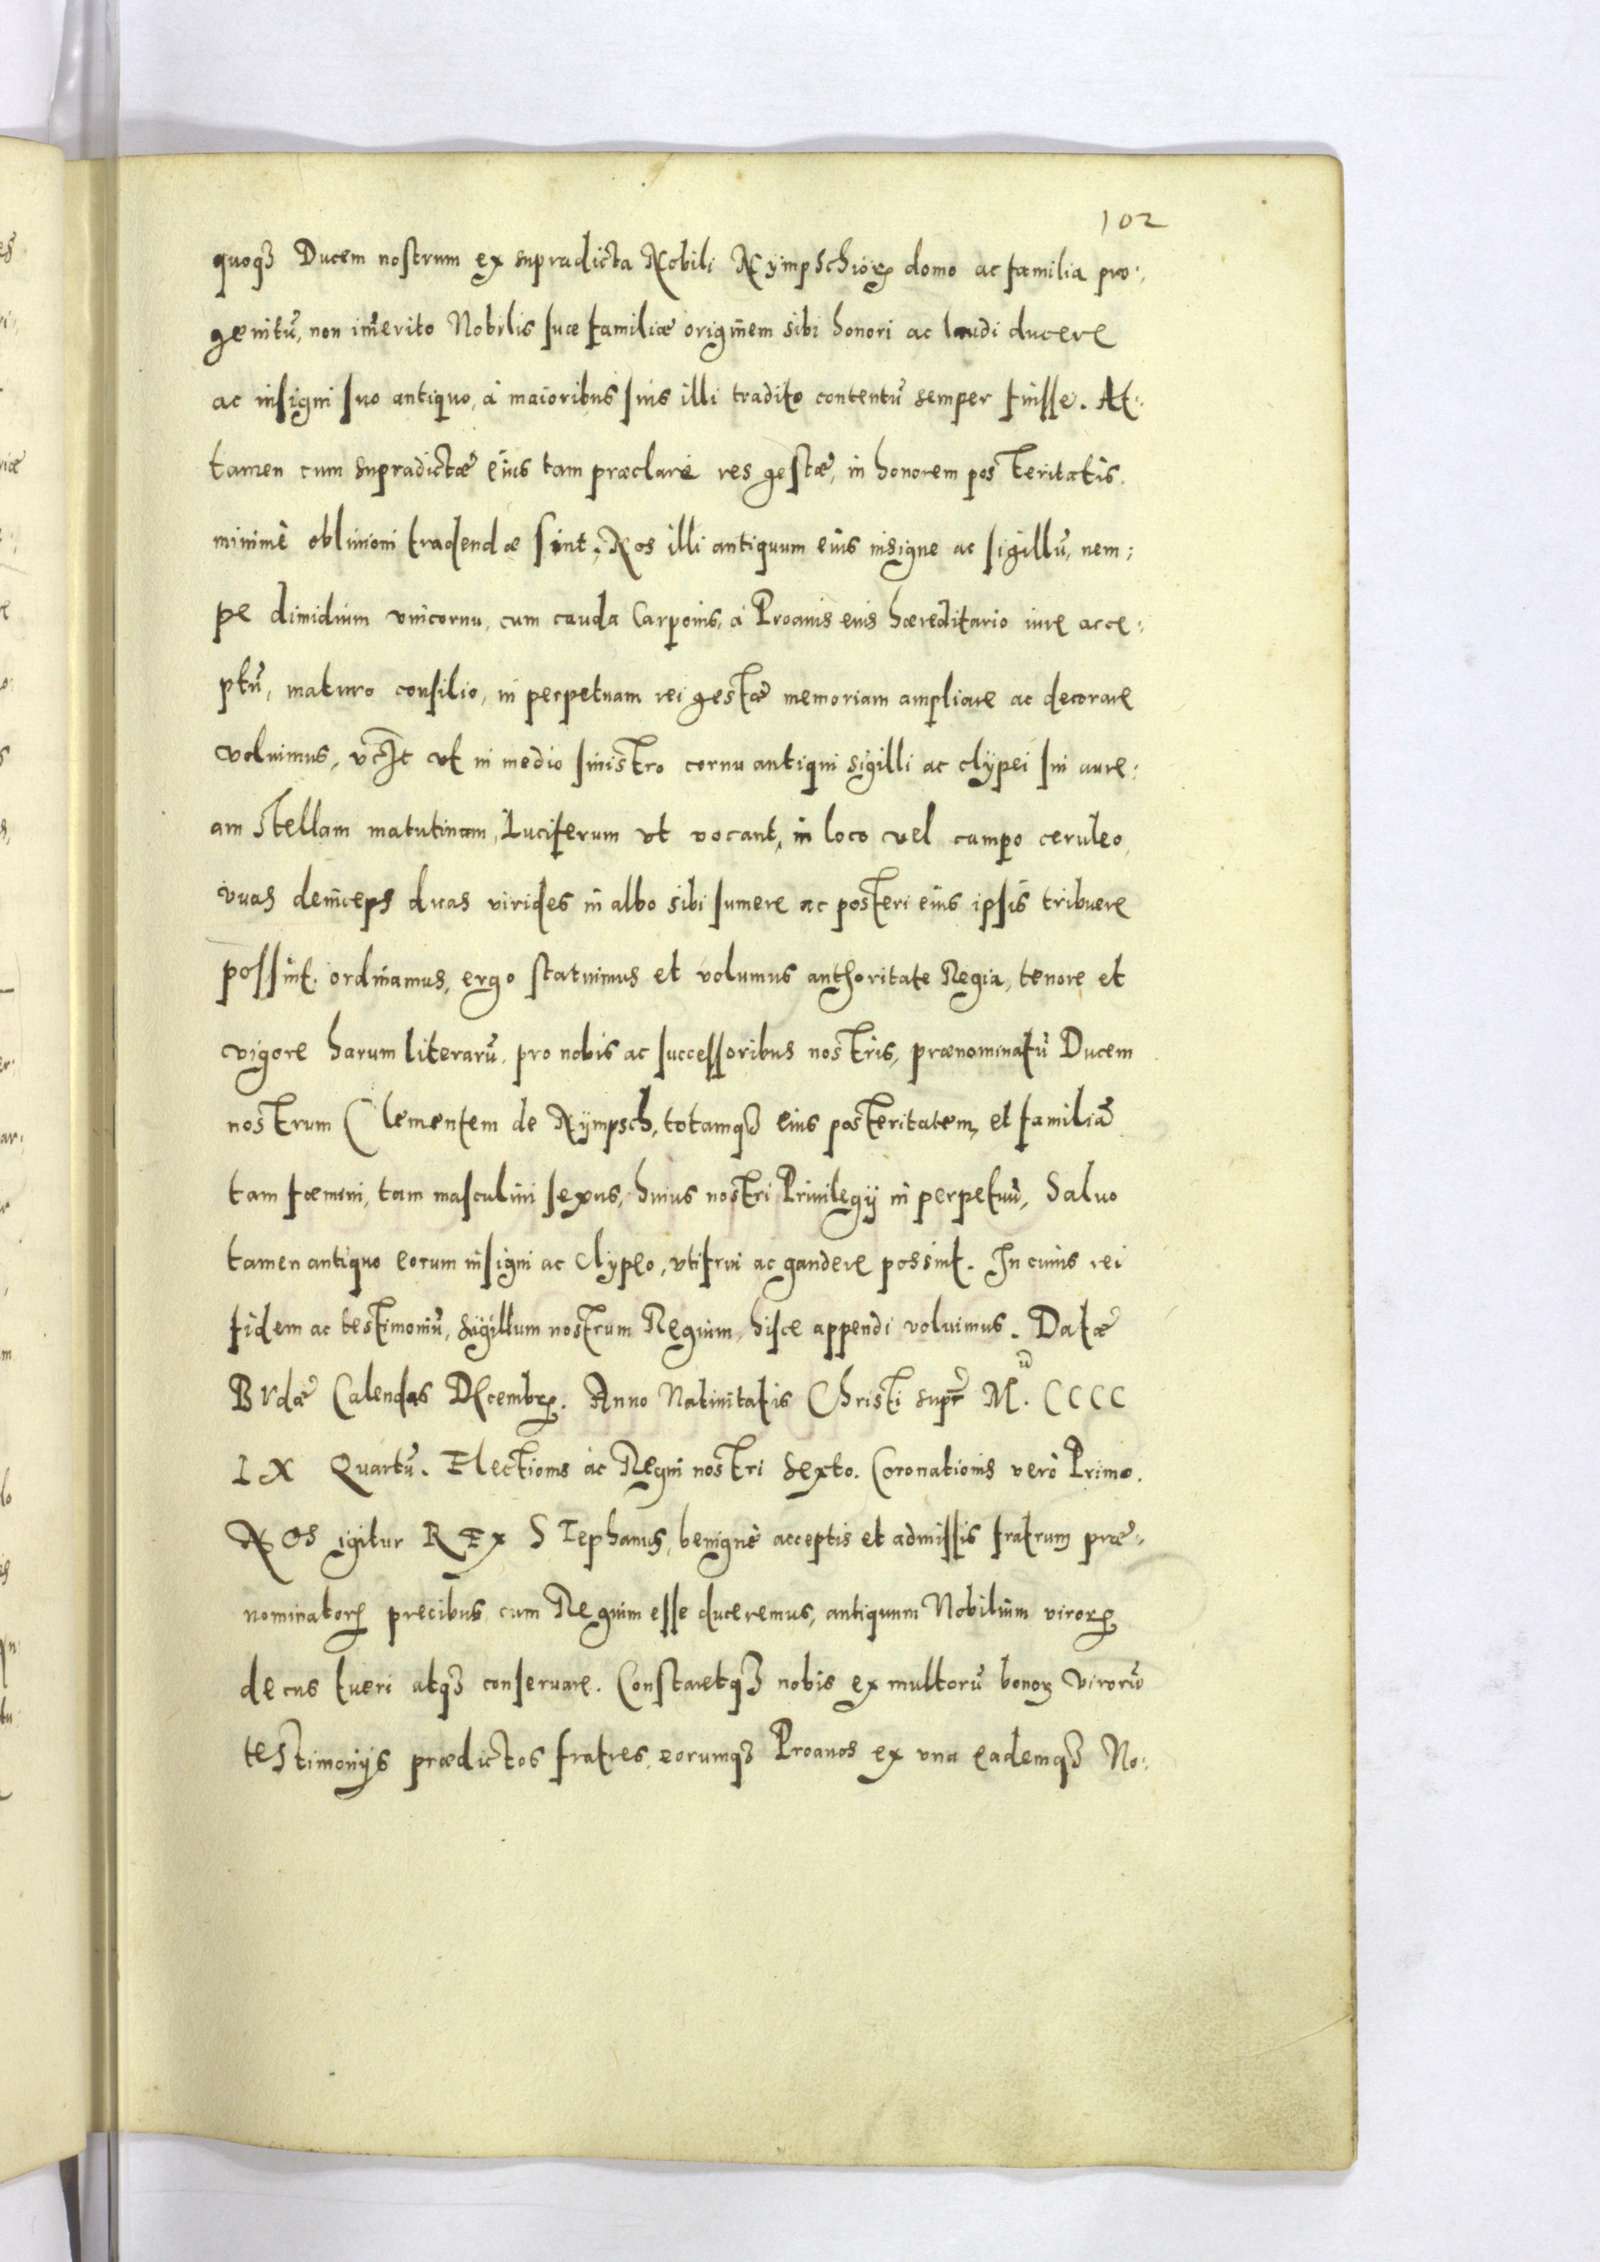 102
quoqȝ Ducem nostrum ex supradicta Nobili Nympschioꝝ domo ac familia pro:
genitū, non im̄erito Nobilis suæ familiæ originem sibi honori ac laudi ducere
ac insigni suo antiquo, à maioribus suis illi tradito contentū semper fuisse. At:
tamen cum supradictæ eius tam præclare res gestæ, in honorem posteritatis
minimè obliuioni tradendæ sint, Nos illi antiquum eius insigne ac sigillū, nem:
pe dimidium vnicornu, cum cauda Carponis, à Proauis eius hæreditario iure acce:
ptū, maturo consilio, in perpetuam rei gestæ memoriam ampliare ac decorare
voluimus, ut in medio sinistro cornu antiqui sigilli ac clypei sui aure:
am stellam matutinam, Luciferum vt vocant, in loco vel campo ceruleo,
vuas deinceps duas virides in albo sibi sumere ac posteri eius ipsis tribuere
possint. ordinamus, ergo statuimus et volumus authoritate Regia, tenore et
vigore harum literarū, pro nobis ac successoribus nostris, prænominatū Ducem
nostrum Clementem de Nympsch, totamqȝ eius posteritatem, et familiā
tam fæmini, tam masculini sexus, huius nostri Priuilegij in perpetuū, Saluo
tamen antiquo eorum insigni ac Clypeo, vti frui ac gaudere possint. In cuius rei
fidem ac testimoniū, sigillum nostrum Regium, hisce appendi voluimus. Datæ
BVdæ Calendas Decembꝝ. Anno Natiuitatis Christi supr̄ M.ū CCCC
LX Quartū. Electionis ac Regni nostri sexto. Coronationis verò Primo.
NOs igitur REx STephanus, benignè acceptis et admissis fratrum præ:
nominatoꝝ precibus, cum Regium esse duceremus, antiquum Nobilium viroꝝ
decus tueri atqȝ conseruare. Constaretqȝ nobis ex multorū bonoꝝ virorū
testimonijs prædictos fratres, eorumqȝ Proauos ex vna eademqȝ No: